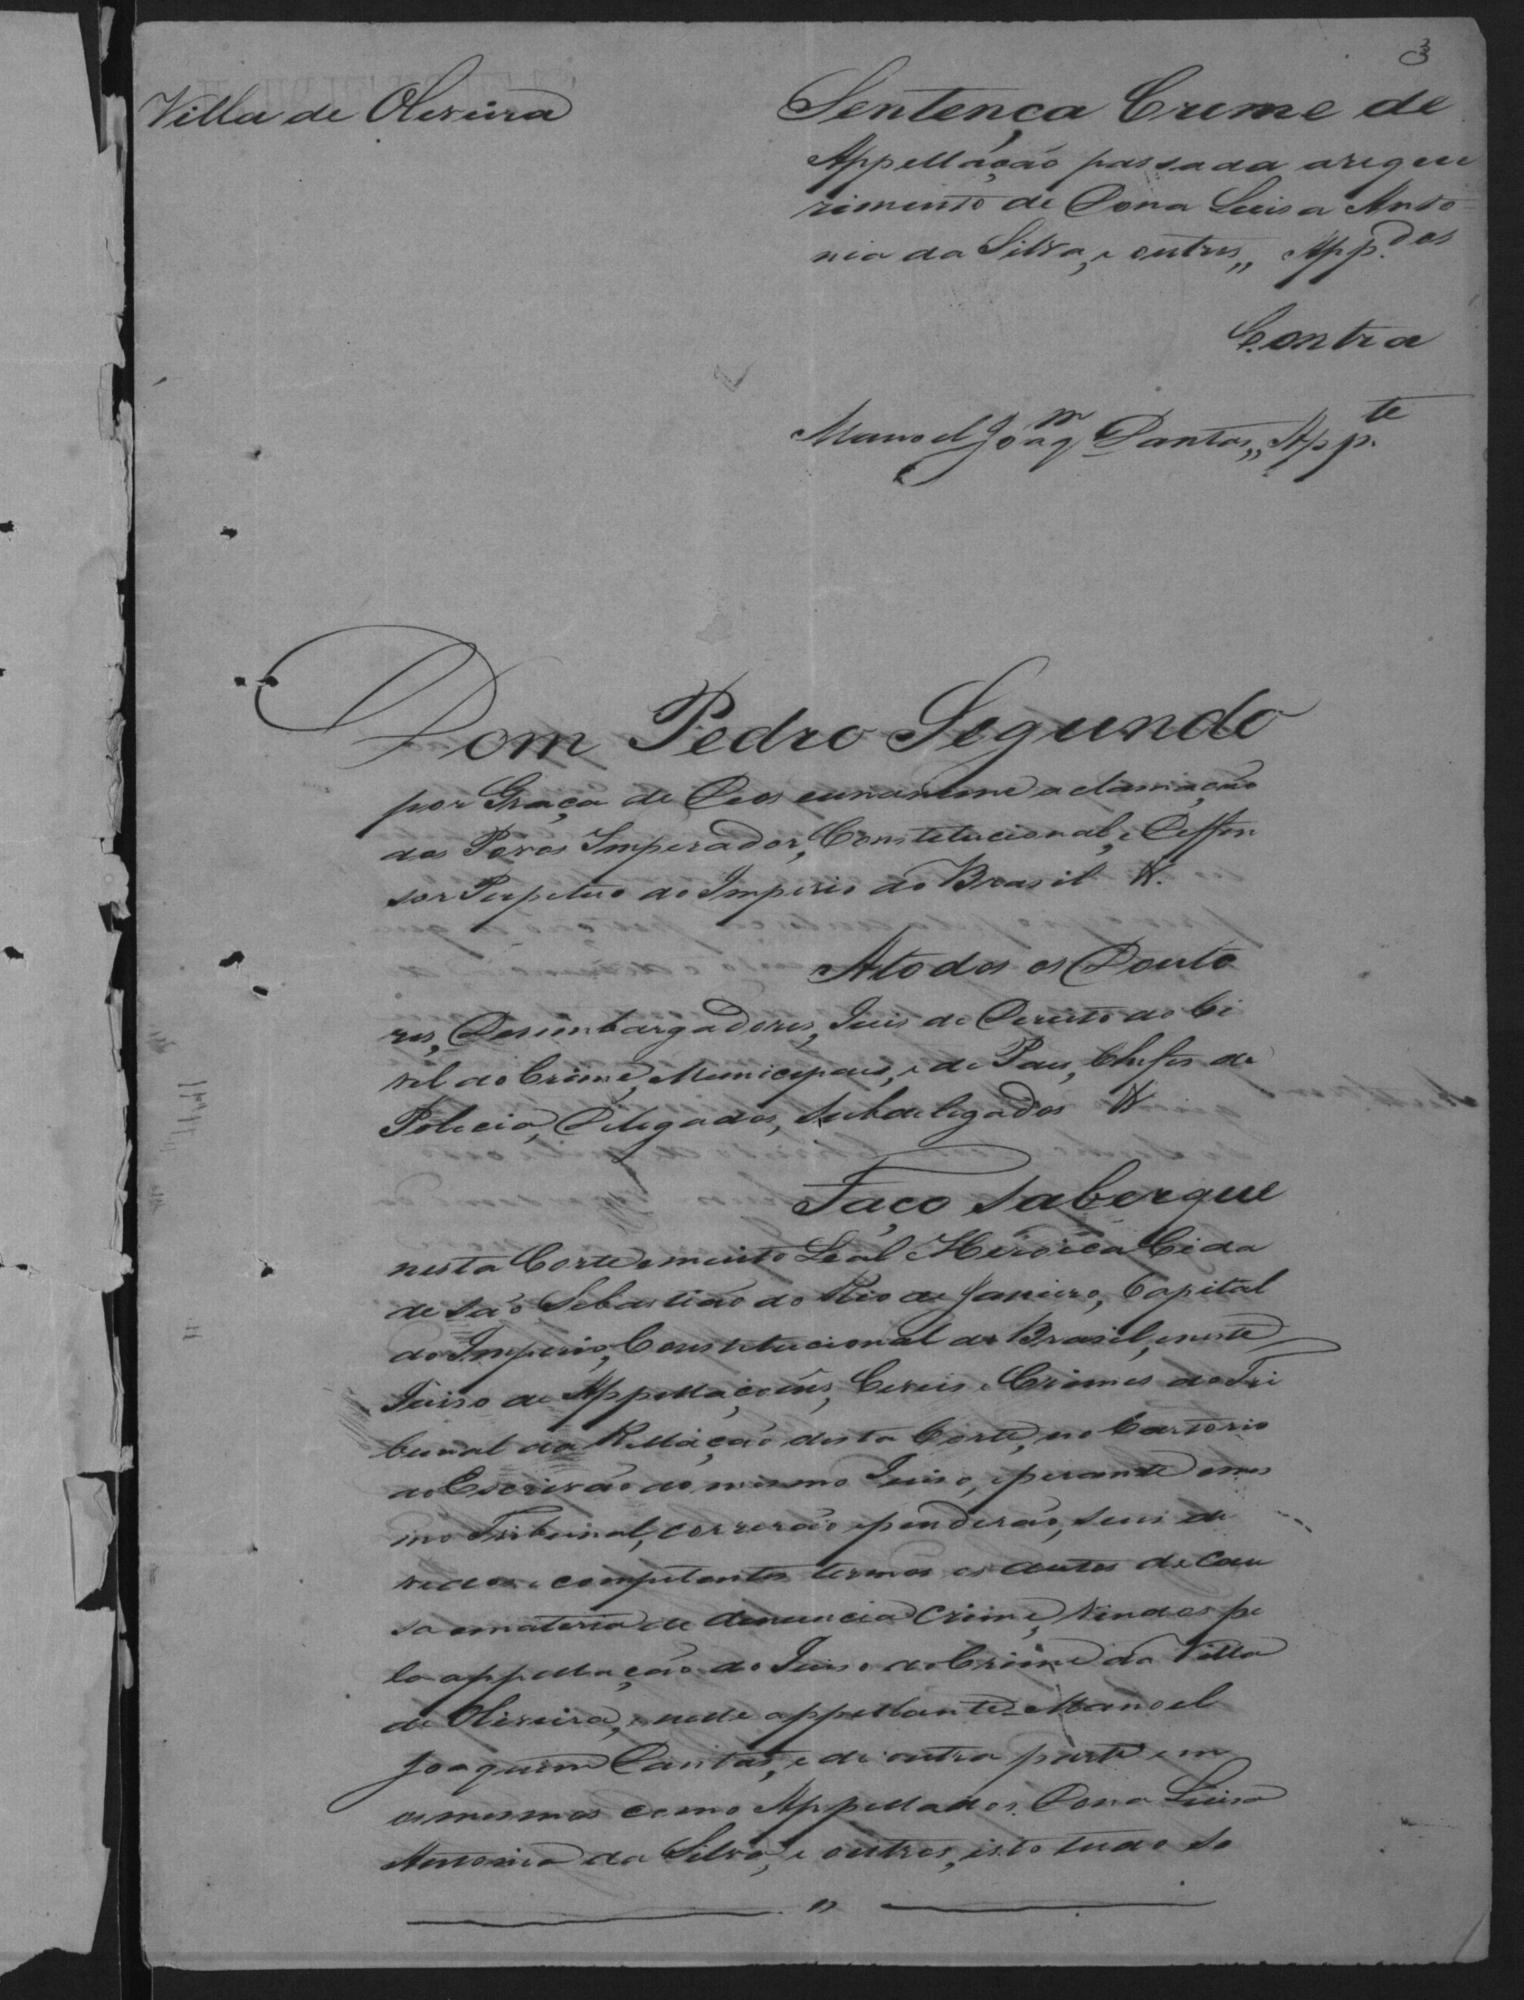 3
Villa de Oliveira
Sentença Crime de
Appellação passada a reque
rimento de Dona Luisa Anto
nia da Silva, e outros,, App.dos
Contra
Manoel Joaqm Dantas,, App.te
Dom Pedro Segundo
por Graça de Deos e unanime aclamação
dos Povos Imperador, Constitucional, e Deffen
sor Perpetuo do Imperio do Brasil &.
A todos os Douto
res, Desembargadores, Juis de Dereito do Ci
vel do Crime, Municipaes, e de Pas, Chefes de
Policia, Delegados, Subdelegados &
Faço saber que
nesta Corte e muito Leal Heroica Cida
de São Sebastião do Rio de Janeiro, Capital
do Imperio, Constitucional do Brasil, e neste
Juiso de Appellaçoens, Civeis e Crimes do Tri
bunal da Rellação desta Corte, no Cartorio
do Escrivão do mesmo Juiso, e perante o mes
mo Tribunal, correrão e penderão, seus de
vidos e competentes termos os autos de cau
sa e materia de denuncia crime, vindos pe
la appellação do Juiso do Crime da Villa
de Oliveira, e nelle appellante Manoel
Joaquim Dantas, e de outra parte em
os mesmos como Appellados Dona Luisa
Antonia da Silva, e outros, isto tudo so